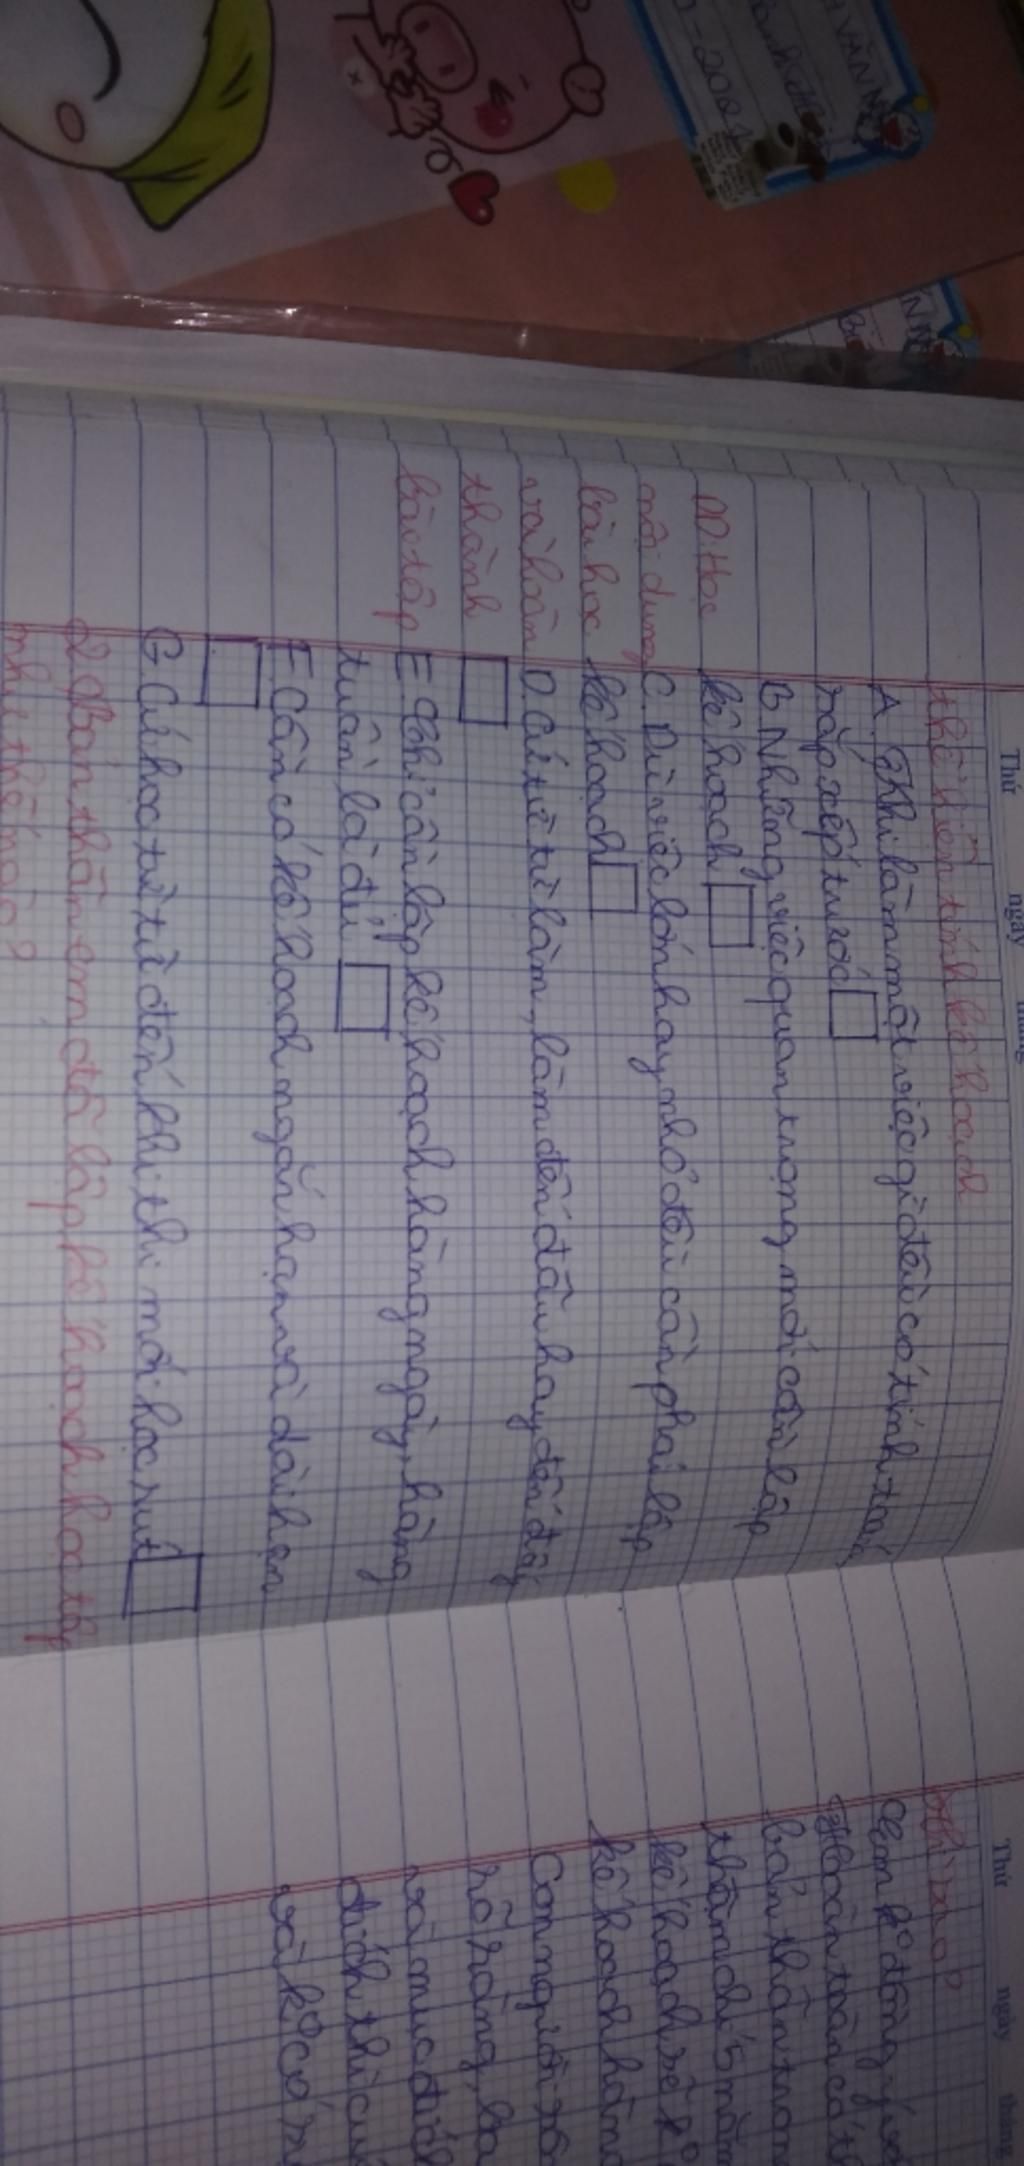 thể hiện tính kế hoạch
A. Khi làm một việc gì đều có tính toán,
sắp xếp trước
B. Những việc quan trọng mới cần lập
kế hoạch
C. Dù việc lớn hay nhỏ đều cần phải lập
kế hoạch
D. Cứ từ từ làm, làm đến đâu hay đến đấy
E. Chỉ cần lập kế hoạch hàng ngày, hàng
tuần là đủ
F. Cần có kế hoạch ngắn hạn và dài hạn
G. Cứ học từ từ đến khi thi mới học rút
2. Bản thân em đã lập kế hoạch học tập
như thế nào?
DD: Học
nội dung
bài học
và hoàn
thành
bài tập
Thứ ngày tháng
Thứ ngày tháng
Vì sao?
Em k° đồng ý
Hoàn toàn có
bản thân
thậm chí 5 năm
kế hoạch sẽ k°
kế hoạch
Con người
rõ ràng,
và mục đích
đích thì
và k° có
2004
VĂN